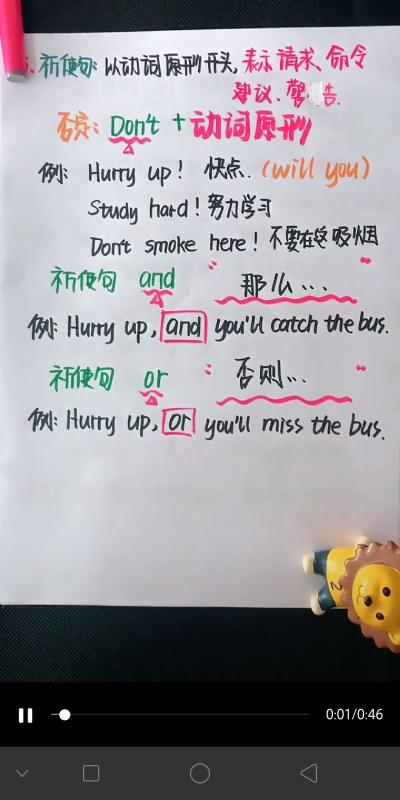 祈使句: 以动词原形开头, 表示请求、命令
建议、警告.
否定: Don't + 动词原形
例: Hurry up! 快点. (will you)
Study hard! 努力学习
Don't smoke here! 不要在这吸烟
祈使句 and " 那么... "
例: Hurry up, and you'll catch the bus.
祈使句 or " 否则... "
例: Hurry up, or you'll miss the bus.
0:01/0:46